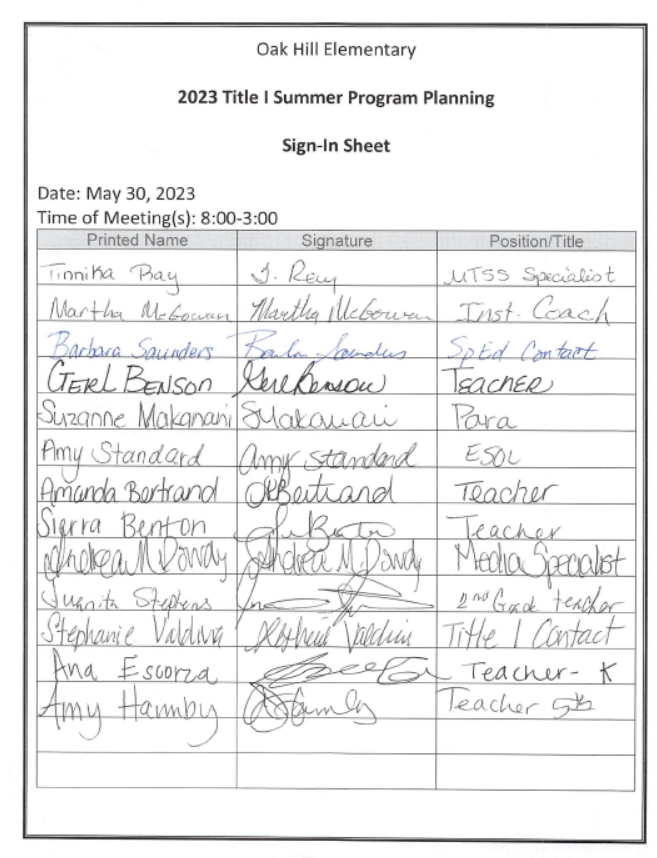 Oak Hill Elementary
2023 Title I Summer Program Planning
Sign-In Sheet
Date: May 30, 2023
Time of Meeting(s): 8:00-3:00
Printed Name Signature Position/Title
Tinnika Ray MTSS Specialist
Martha McGowan Martha McGowan Inst. Coach
Barbara Saunders Saunders SpEd Contact
GERL BENSON Benson TEACHER
Suzanne Makanani SMakanani Para
Amy Standard Amy Standard ESOL
Amanda Bertrand Bertrand Teacher
Sierra Benton Teacher
Andrea M Dowdy Andrea M. Dowdy Media Specialist
Juanita Stephens 2nd Grade teacher
Stephanie Valdivia Title 1 Contact
Ana Escorza Teacher- K
Amy Hamby Teacher 5th